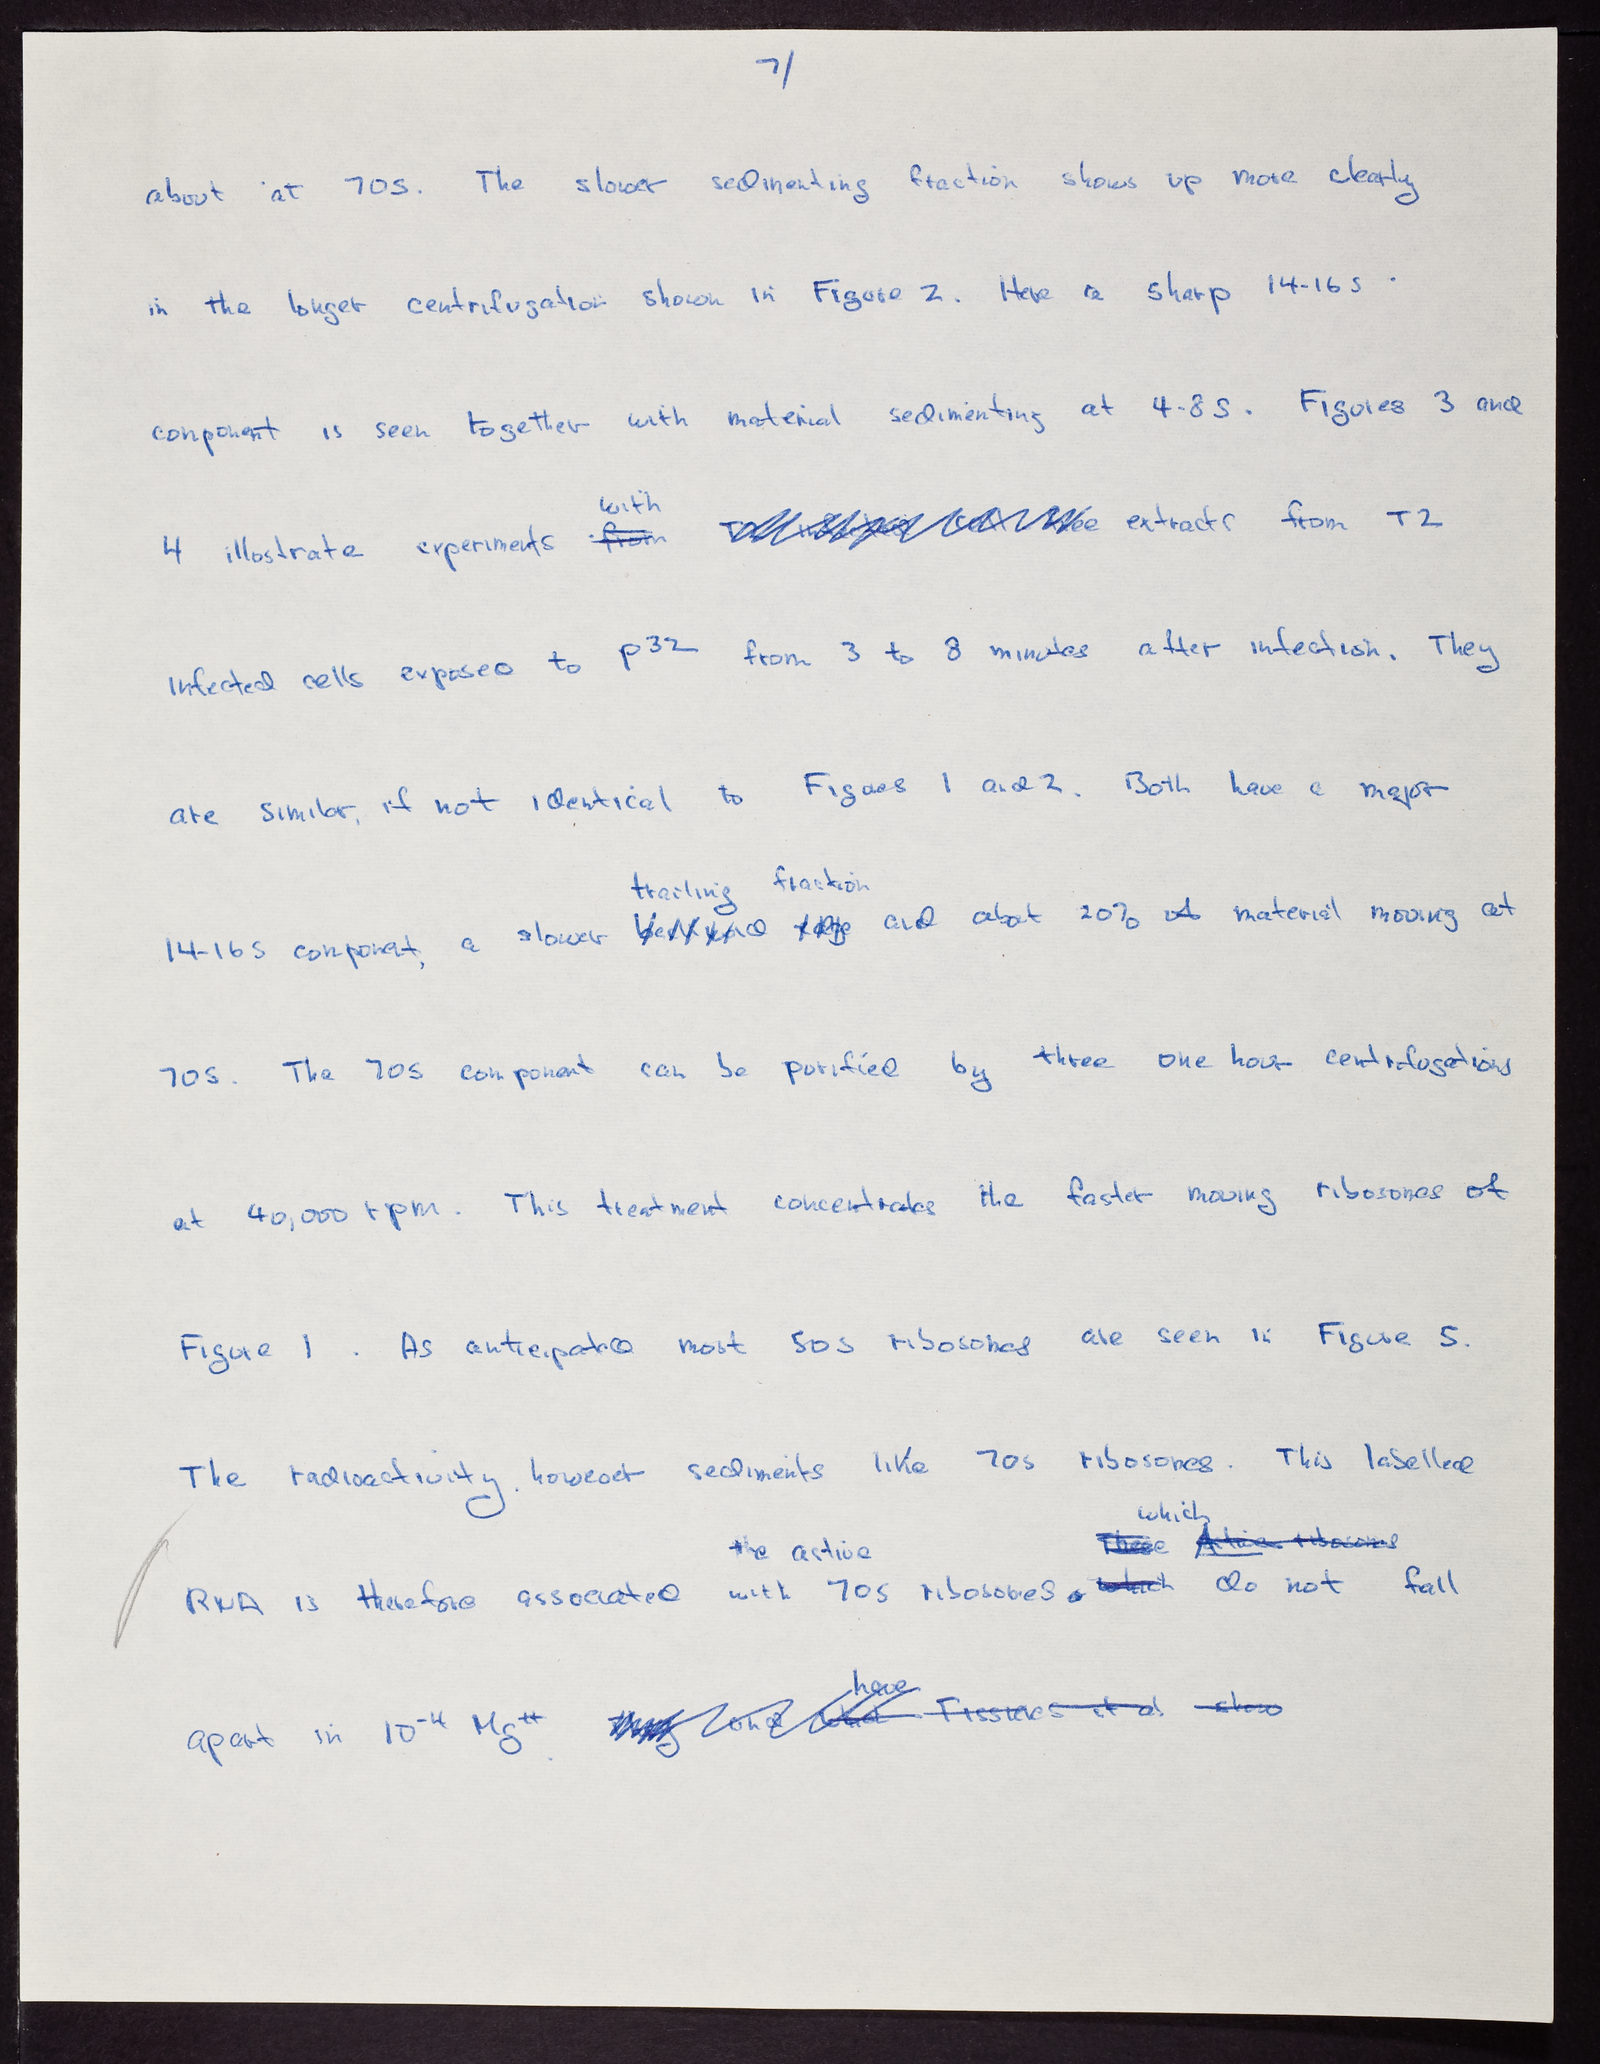 7/
about at 70S. The slower sedimenting fraction shows up more clearly
in the longer centrifugation shown in Figure 2. Here a sharp 14-16S
component is seen together with material sedimenting at 4-8S. Figures 3 and
with
4 illustrate experiments from extracts from T2
infected cells exposed to P32 from 3 to 8 minutes after infection. They
are similar, if not identical to Figures 1 and 2. Both have a major
trailing fraction
14-16S component, a slower backward edge and about 20% of material moving at
70S. The 70S component can be purified by three one hour centrifugations
at 40,000 rpm. This treatment concentrates the faster moving ribosomes of
Figure 1. As anticipated most 50S ribosomes are seen in Figure 5.
The radioactivity, however sediments like 70S ribosomes. This labelled
which
the active These Active ribosomes
RNA is therefore associated with 70S ribosomes, which do not fall
have
apart in 10-4 Mg++. and Tissieres et al show